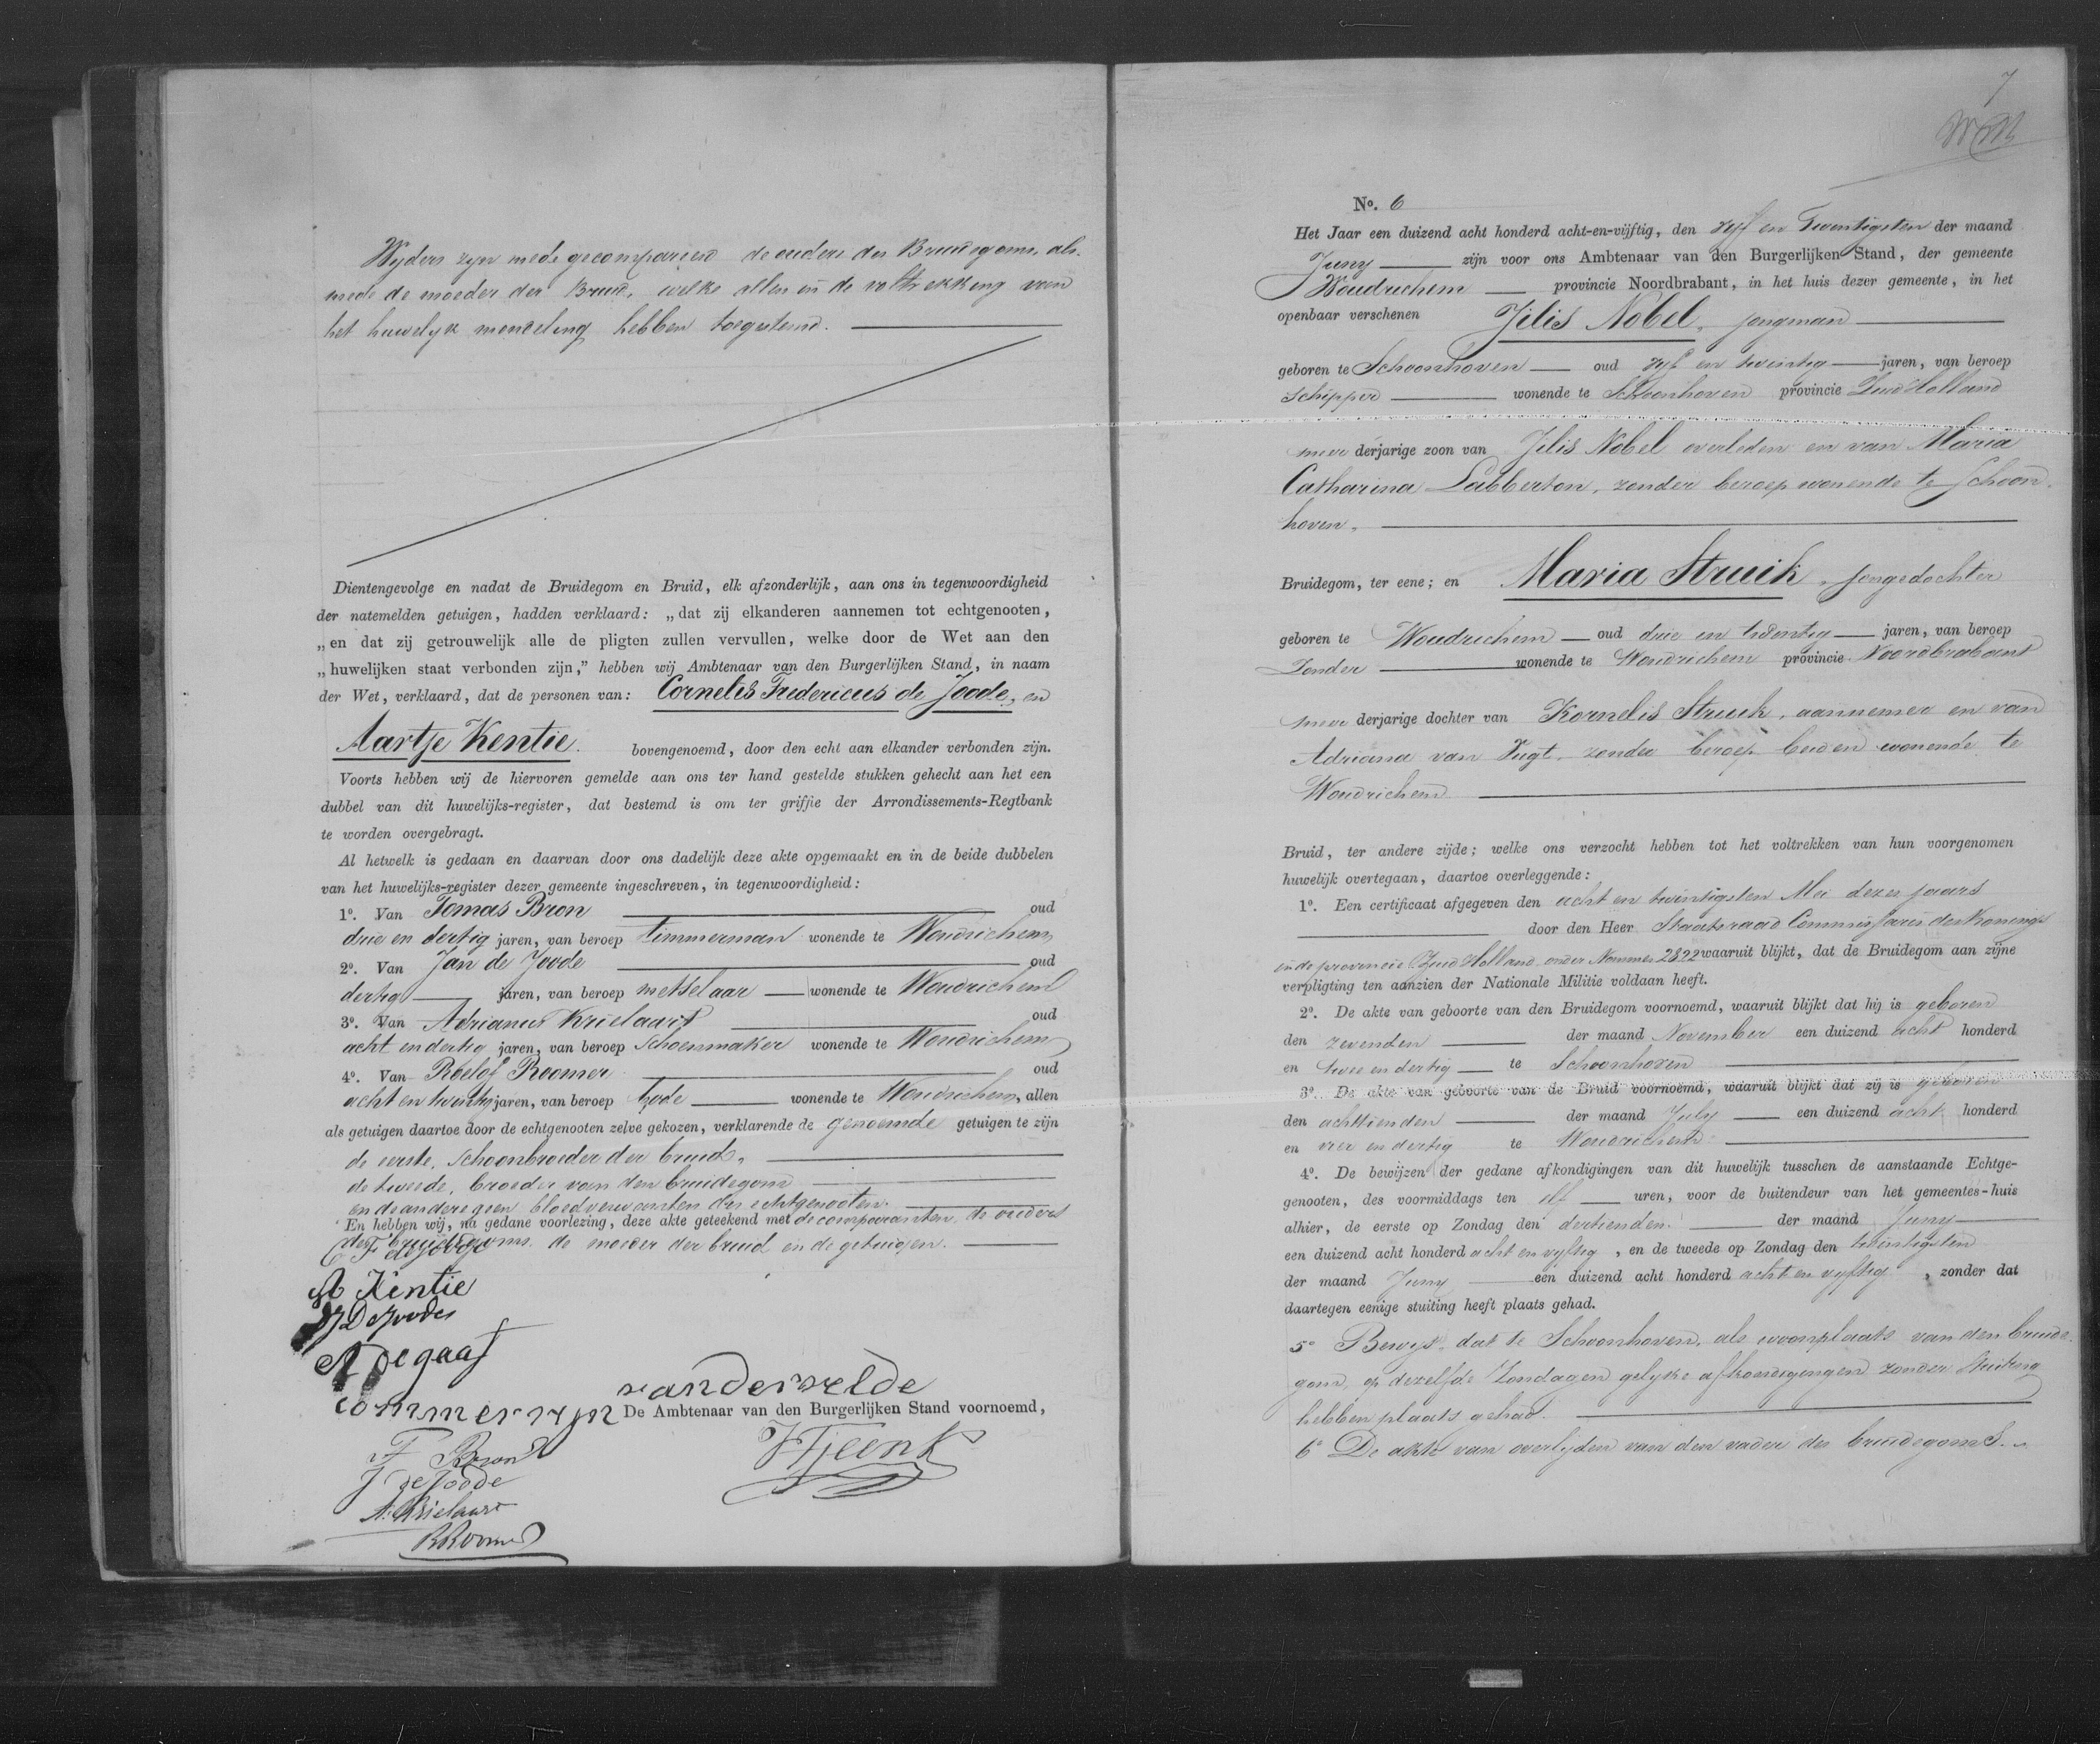 Wyders zyn mede gecompareerd de ouders des Bruidegoms, als
mede de moeder der Bruid, welke allen in de voltrekking van
het huwelyk mondeling hebben toegestemd.
Dientengevolge en nadat de Bruidegom en Bruid, elk afzonderlijk, aan ons in tegenwoordigheid
der natemelden getuigen, hadden verklaard: „dat zij elkanderen aannemen tot echtgenooten,
„en dat zij getrouwelijk alle de pligten zullen vervullen, welke door de Wet aan den
„huwelijken staat verbonden zijn,” hebben wij Ambtenaar van den Burgerlijken Stand, in naam
der Wet, verklaard, dat de personen van: Cornelis Fredericus de Joode, en
Aartje Kentie. bovengenoemd, door den echt aan elkander verbonden zijn.
Voorts hebben wij de hiervoren gemelde aan ons ter hand gestelde stukken gehecht aan het een
dubbel van dit huwelijks-register, dat bestemd is om ter griffie der Arrondissements-Regtbank
te worden overgebragt.
Al hetwelk is gedaan en daarvan door ons dadelijk deze akte opgemaakt en in de beide dubbelen
van het huwelijks-register dezer gemeente ingeschreven, in tegenwoordigheid:
1o. Van Tomas Bron oud
drie en dertig jaren, van beroep timmerman wonende te Woudrichem
2o. Van Jan de Joode oud
dertig jaren, van beroep metselaar wonende te Woudrichem
3o. Van Adrianus Krielaart oud
acht en dertig jaren, van beroep Schoenmaker wonende te Woudrichem
4o. Van Roelof Roomer oud
acht en twintig jaren, van beroep bode wonende te Woudrichem, allen
als getuigen daartoe door de echtgenooten zelve gekozen, verklarende de genoemde getuigen te zijn
de eerste, Schoonbroeder der bruid,
de tweede, broeder van den bruidegom
en de andere geen bloedverwanten der echtgenooten.
En hebben wij, na gedane voorlezing, deze akte geteekend met de comparanten, de ouders
des bruidegoms. de moeder der bruid en de getuigen.
C F de Joode
A Kentie
J D Joode
A Degaaf
vanderwelde
commerryn De Ambtenaar van den Burgerlijken Stand voornoemd,
T Bron
J de Joode
A. Krielaart
R Roomer
7
No. 6
Het Jaar een duizend acht honderd acht-en-vijftig, den vyf en Twentigsten der maand
Juny zijn voor ons Ambtenaar van den Burgerlijken Stand, der gemeente
Woudrichem provincie Noordbrabant, in het huis dezer gemeente, in het
openbaar verschenen Jilis Nobel, jongman
geboren te Schoonhoven oud vyf en twintig jaren, van beroep
Schipper wonende te Schoonhoven provincie Zuid Holland
meerderjarige zoon van Jilis Nobel overleden en van Maria
Catharina Labberton, zonder beroep wonende te Schoon
hoven,
Bruidegom, ter eene; en Maria Struik, jongedochter
geboren te Woudrichem oud drie en twentig jaren, van beroep
Zonder wonende te Woudrichem provincie Noordbrabant
meerderjarige dochter van Kornelis Struik, aannemer en van
Adriana van Vugt, zonder beroep beiden wonende te
Woudrichem
Bruid, ter andere zijde; welke ons verzocht hebben tot het voltrekken van hun voorgenomen
huwelijk overtegaan, daartoe overleggende:
1o. Een certificaat afgegeven den acht en twintigsten Mei dezes jaars
door den Heer Staatsraad Commissaris des Konings
in de provincie Zuid Holland onder Nommer 2822 waaruit blijkt, dat de Bruidegom aan zijne
verpligting ten aanzien der Nationale Militie voldaan heeft.
2o. De akte van geboorte van den Bruidegom voornoemd, waaruit blijkt dat hij is geboren
den zevenden der maand November een duizend acht honderd
en twee en dertig te Schoonhoven
3o. De akte van geboorte van de Bruid voornoemd, waaruit blijkt dat zij is geboren
den achttienden der maand July een duizend acht honderd
en vier en dertig te Woudrichem
4o. De bewijzen der gedane afkondigingen van dit huwelijk tusschen de aanstaande Echtge-
genooten, des voormiddags ten elf uren, voor de buitendeur van het gemeentes-huis
alhier, de eerste op Zondag den dertienden der maand Juny
een duizend acht honderd acht en vyftig, en de tweede op Zondag den twintigsten
der maand Juny een duizend acht honderd acht en vyftig, zonder dat
daartegen eenige stuiting heeft plaats gehad.
5o Bewys dat te Schoonhoven, als woonplaats van den bruide-
gom, op dezelfde Zondagen gelyke afkondigingen zonder stuiting
hebben plaats gehad.
6o De akte van overlyden van den vader des bruidegoms.